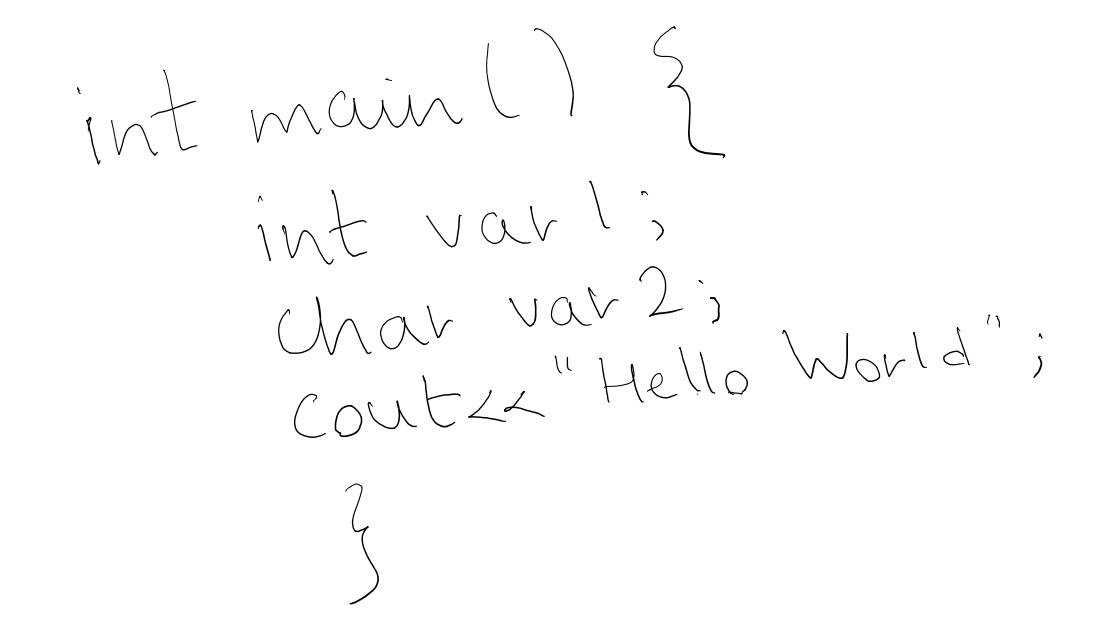 int main() {
int var1;
char var2;
cout<<"Hello World";
}